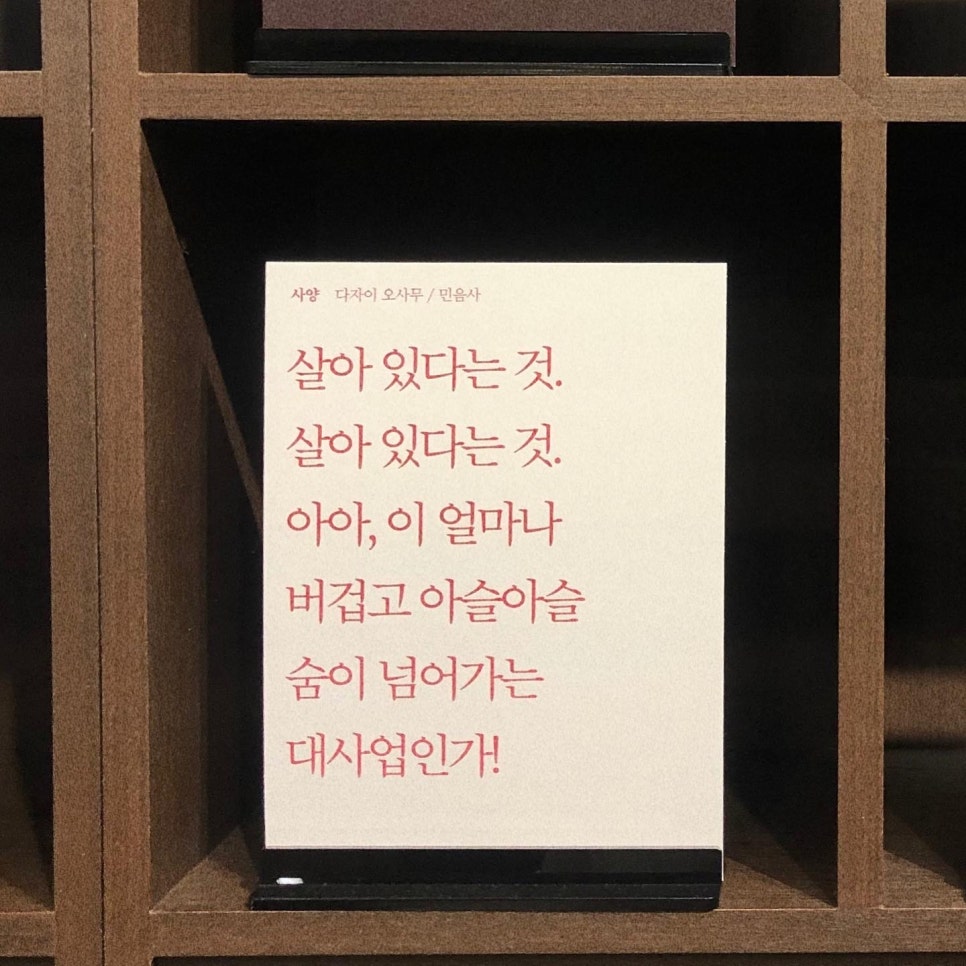 사양 다자이 오사무 / 민음사
살아 있다는 것.
살아 있다는 것.
아아, 이 얼마나
버겁고 아슬아슬
숨이 넘어가는
대사업인가!